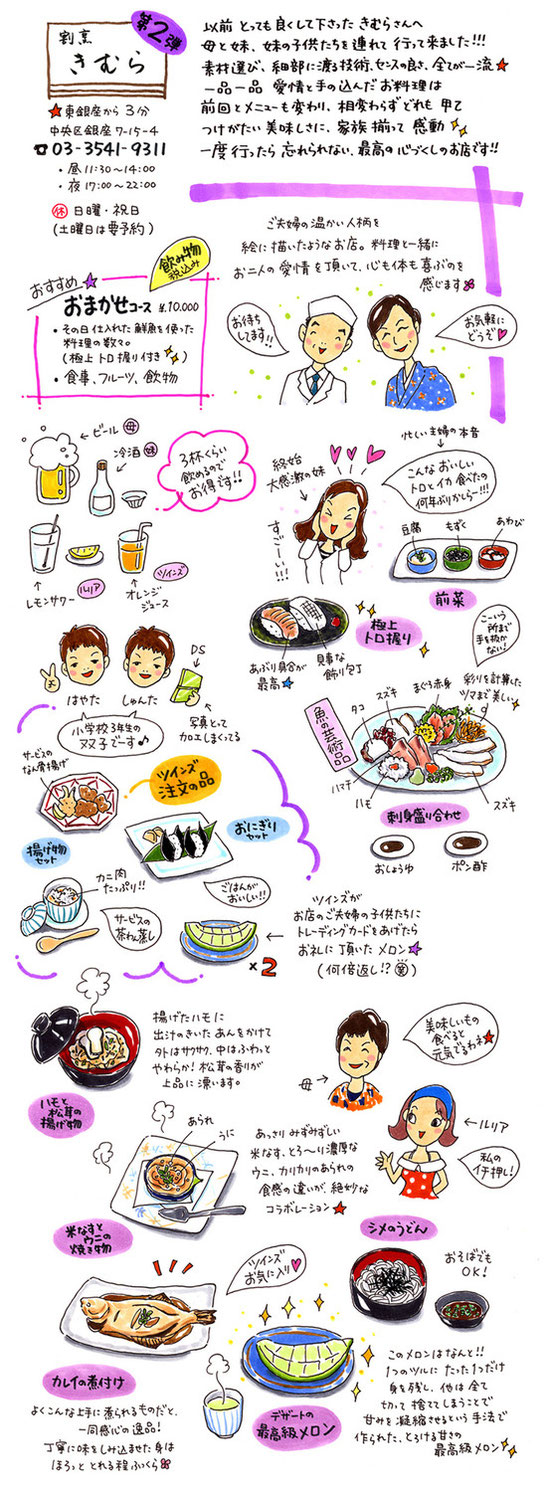 第2弾
割烹
きむら
★東銀座から3分
中央区銀座7-15-4
☎03-3541-9311
・昼11:30〜14:00
・夜17:00〜22:00
㊡日曜・祝日
(土曜日は要予約)
以前とっても良くして下さったきむらさんへ
母と妹、妹の子供たちを連れて行って来ました!!!
素材選び、細部に渡る技術、センスの良さ、全てが一流★
一品一品 愛情と手の込んだお料理は
前回とメニューも変わり、相変わらずどれも甲乙
つけがたい美味しさに、家族揃って感動
一度行ったら忘れられない、最高の心づくしのお店です!!
ご夫婦の温かい人柄を
絵に描いたようなお店。料理と一緒に
お二人の愛情を頂いて、心も体も喜ぶのを
感じます
お待ち
してます!!
お気軽に
どうぞ♥
飲み物
税込み
おすすめ★
おまかせコース ¥10.000
・その日仕入れた鮮魚を使った
料理の数々。
(極上トロ握り付き)
・食事、フルーツ、飲物
ビール 母
冷酒 妹
3杯くらい
飲めるので
お得です!!
レモンサワー
ルリア
オレンジ
ジュース
ツインズ
終始
大感激の妹
すごーい!!!
忙しい主婦の本音
こんなおいしい
トロとイカ食べたの
何年ぶりかしらー!!!
豆腐
もずく
あわび
前菜
極上
トロ握り
あぶり具合が
最高★
見事な
飾り包丁
こーいう
所まで
手を抜か
ない!
はやた
しゅんた
DS
写真とって
加工しまくってる
小学校3年生の
双子でーす♪
魚の芸術品
タコ
スズキ
まぐろ赤身
彩りを計算した
ツマまで美しい
ハマチ
ハモ
スズキ
刺身盛り合わせ
おしょうゆ
ポン酢
サービスの
なん骨揚げ
ツインズ
注文の品
揚げ物
セット
おにぎり
セット
カニ肉
たっぷり!!
ごはんが
おいしい!!
サービスの
茶わん蒸し
×2
ツインズが
お店のご夫婦の子供たちに
トレーディングカードをあげたら
お礼に頂いたメロン★
(何倍返し!?笑)
揚げたハモに
出汁のきいたあんをかけて
外はサクサク、中はふわっと
やわらか!松茸の香りが
上品に漂います。
ハモと
松茸の
揚げ物
美味しいもの
食べると
元気でるわネ★
母
ルリア
私の
イチ押し!
あられ
うに
あっさりみずみずしい
米なす、とろ〜り濃厚な
ウニ、カリカリのあられの
食感の違いが、絶妙な
コラボレーション★
米なすと
ウニの
焼き物
シメのうどん
おそばでも
OK!
ツインズ
お気に入り♥
カレイの煮付け
よくこんな上手に煮られるものだと、
一同感心の逸品!
丁寧に味をしみ込ませた身は
ほろっととれる程ふっくら
デザートの
最高級メロン
このメロンはなんと!!
1つのツルにたった1つだけ
身を残し、他は全て
切って捨ててしまうことで
甘みを凝縮させるという手法で
作られた、とろける甘さの
最高級メロン